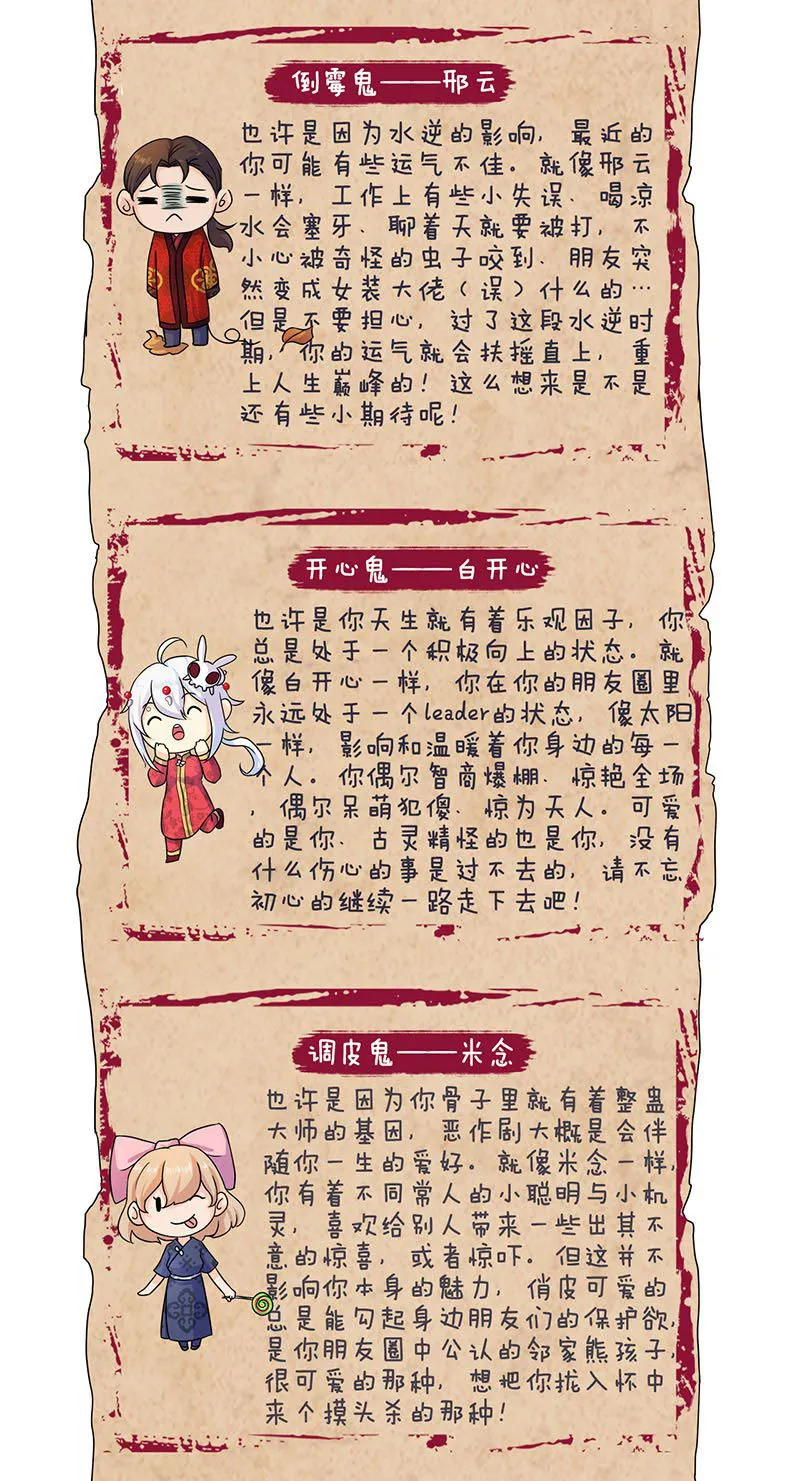 倒霉鬼——邢云
也许是因为水逆的影响，最近的
你可能有些运气不佳。就像邢云
一样，工作上有些小失误、喝凉
水会塞牙、聊着天就要被打，不
小心被奇怪的虫子咬到、朋友突
然变成女装大佬（误）什么的…
但是不要担心，过了这段水逆时
期，你的运气就会扶摇直上，重
上人生巅峰的！这么想来是不是
还有些小期待呢！
开心鬼——白开心
也许是你天生就有着乐观因子，你
总是处于一个积极向上的状态。就
像白开心一样，你在你的朋友圈里
永远处于一个leader的状态，像太阳
一样，影响和温暖着你身边的每一
个人。你偶尔智商爆棚、惊艳全场
，偶尔呆萌犯傻、惊为天人。可爱
的是你、古灵精怪的也是你，没有
什么伤心的事是过不去的，请不忘
初心的继续一路走下去吧！
调皮鬼——米念
也许是因为你骨子里就有着整蛊
大师的基因，恶作剧大概是会伴
随你一生的爱好。就像米念一样，
你有着不同常人的小聪明与小机
灵，喜欢给别人带来一些出其不
意的惊喜，或者惊吓。但这并不
影响你本身的魅力，俏皮可爱的
总是能勾起身边朋友们的保护欲，
是你朋友圈中公认的邻家熊孩子，
很可爱的那种，想把你拢入怀中
来个摸头杀的那种！